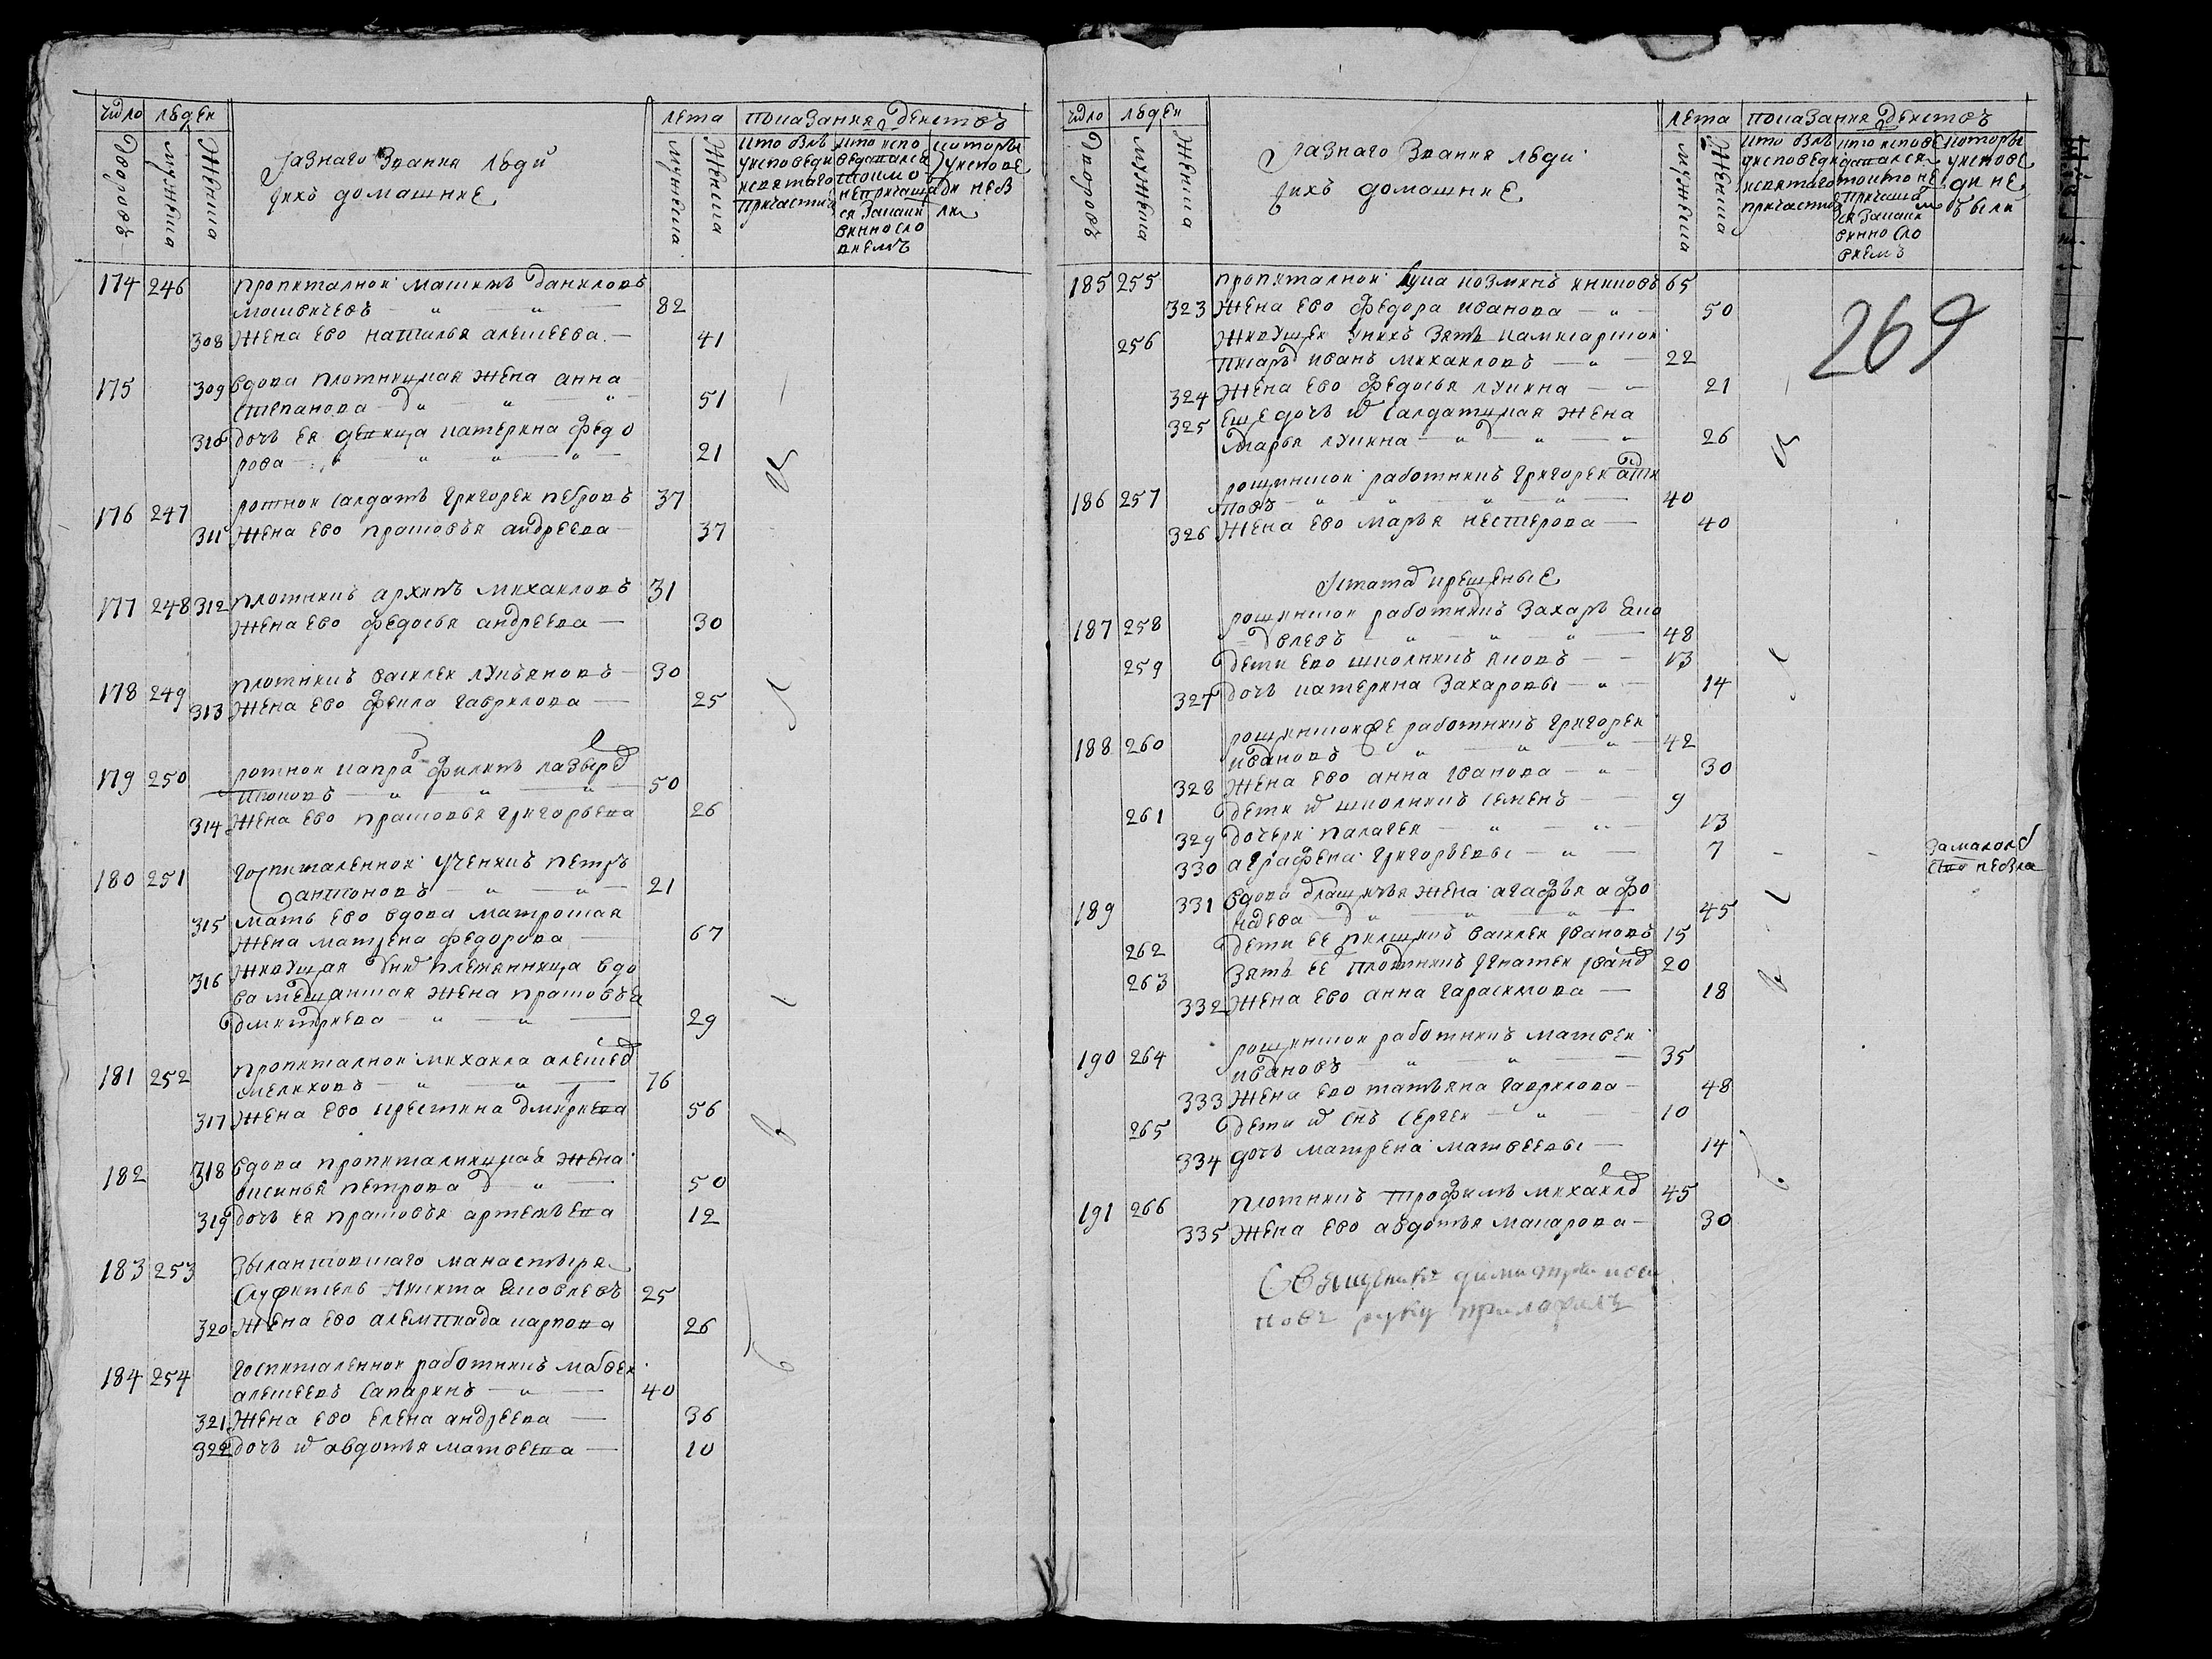 число людей
лета показания действъ
дворовъ мужеска женска
Разнаго звания люди
ихъ домашние
мужеска женска
кто былъ у исповеди и святаго причастия
кто исповедался токмо а не причащался за каким винословиемъ
которые у исповеди не были
174 246 пропиталной Максимъ Даниловъ
82
308 жена ево Наталья Алексеева 41
175 309 вдова плотницкая жена Анна
Степанова 51
310 дочь ея девица Катерина Федо
рова 21
176 247 ротной салдатъ Григорей Петровъ 37
311 жена ево Прасковья Андреева 37
177 248 312 плотникъ Архипъ Михаиловъ 31
жена ево Федосья Андреева 30
178 249 плотникъ Василей Лукьяновъ 30
313 жена ево Фекла Гаврилова 25
179 250 ротной капра Филипъ
50
314 жена ево Прасковья Григорьева 26
180 251 госпиталенной ученикъ Петръ
Антоновъ 21
315 мать ево вдова матроская
жена Матрена Федорова 67
316 живущая у них племянница вдо
ва мещанская жена Прасковья
Дмитриева 29
181 252 пропиталной Михаила Алексеев
Мелиховъ 76
317 жена ево Крестина Дмитриева 56
182 318 вдова пропиталницкая жена
Оксинья Петрова 50
319 дочь ея Прасковья Артемьева 12
183 253 Зылантовскаго манастыря
служитель Никита Яковлевъ 25
320 жена ево Алемпиада Карпова 26
184 254 госпиталенной работникъ Матвей
Алексеевъ Сапаринъ 40
321 жена ево Елена Андреева 36
322 дочь их Авдотья Матвеева 10
число людей
лета показания действъ
дворовъ мужеска женска
Разнаго звания люди
ихъ домашние
мужеска женска
кто былъ у исповеди и святаго причастия
кто исповедался токмо не причащался за каким винословиемъ
которые у исповеди не были
185 255 пропиталной Лука Козминъ 65
323 жена ево Федора Иванова 50
256 живущей у нихъ зять камисарской
писарь Иванъ Михаиловъ 22
324 жена ево Федосья Лукина 21
325 еще дочь их салдатцкая жена
Марья Лукина 26
186 257 рощинской работникъ Григорей
40
326 жена ево Марья Нестерова 40
Ис татар крещеные
187 258 рощинской работникъ Захаръ Яко
влевъ 48
259 дети ево школникъ Яковъ 13
327 дочь Катерина Захаровы 14
188 260 рощинской же работникъ Григорей
Ивановъ 42
328 жена ево Анна Иванова 30
261 дети их школникъ Семенъ 9
329 дочери Палагея 13
330 Аграфена Григорьевы 7 за малолетством
189 331 вдова жена Агафья
45
262 дети ее Василей Ивановъ 15
263 зять ее плотникъ Игнатей Иванов 20
332 жена ево Анна Гарасимова 18
190 264 рощинской работникъ Матвей
Ивановъ 35
333 жена ево Татьяна Гаврилова 48
265 дети их сынъ Сергей 10
334 дочь Матрена Матвеевы 14
191 266 плотникъ Трофимъ Михаилов 45
335 жена ево Авдотья Макарова 30
269
Священикъ Димитрей Ива
новъ руку приложилъ